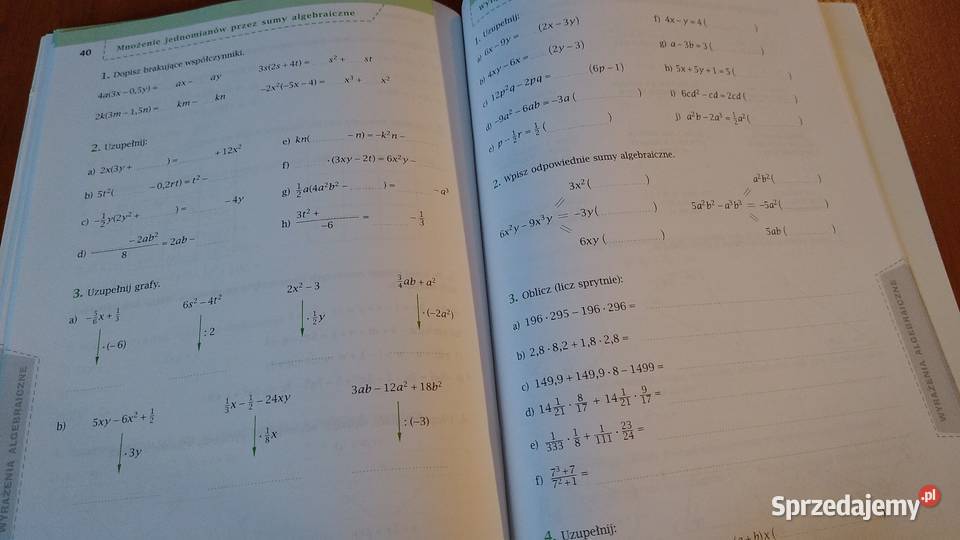 40 Mnożenie jednomianów przez sumy algebraiczne
1. Dopisz brakujące współczynniki.
4a(3x − 0,5y) = ax − ay
3s(2s + 4t) = s² + st
2k(3m − 1,5n) = km − kn
−2x²(−5x − 4) = x³ + x²
2. Uzupełnij:
a) 2x(3y + ............) = ............ + 12x²
b) 5t²( ............ − 0,2rt) = t² − ............
c) −½y(2y² + ............) = ............ − 4y
d) ............ − 2ab² / 8 = 2ab − ............
e) kn( ............ − n) = −k²n − ............
f) ............ · (3xy − 2t) = 6x²y − ............
g) ½a(4a²b² − ............) = ............ − a³
h) 3t² + ............ / −6 = ............ − 1/3
3. Uzupełnij grafy.
a) −5/6x + 1/3
· (−6)
6s² − 4t²
: 2
2x² − 3
· ½y
¾ab + a²
· (−2a²)
b) 5xy − 6x² + ½
· 3y
1/3x − ½ − 24xy
· 1/8x
3ab − 12a² + 18b²
: (−3)
WYRAŻENIA ALGEBRAICZNE
1. Uzupełnij:
a) 6x − 9y = ............ (2x − 3y)
b) 4xy − 6x = ............ (2y − 3)
c) 12p²q − 2pq = ............ (6p − 1)
d) −9a² − 6ab = −3a ( ............ )
e) p − ½r = ½ ( ............ )
f) 4x − y = 4 ( ............ )
g) a − 3b = 3 ( ............ )
h) 5x + 5y + 1 = 5 ( ............ )
i) 6cd² − cd = 2cd ( ............ )
j) a²b − 2a³ = ½a² ( ............ )
2. Wpisz odpowiednie sumy algebraiczne.
3x² ( ............ )
6x²y − 9x³y = −3y ( ............ )
6xy ( ............ )
a²b² ( ............ )
5a²b² − a³b³ = −5a² ( ............ )
5ab ( ............ )
3. Oblicz (licz sprytnie):
a) 196 · 295 − 196 · 296 =
b) 2,8 · 8,2 + 1,8 · 2,8 =
c) 149,9 + 149,9 · 8 − 1499 =
d) 14 1/21 · 8/17 + 14 1/21 · 9/17 =
e) 1/333 · 1/8 + 1/111 · 23/24 =
f) 7³ + 7 / 7² + 1 =
4. Uzupełnij:
WYRAŻENIA ALGEBRAICZNE
Sprzedajemy.pl